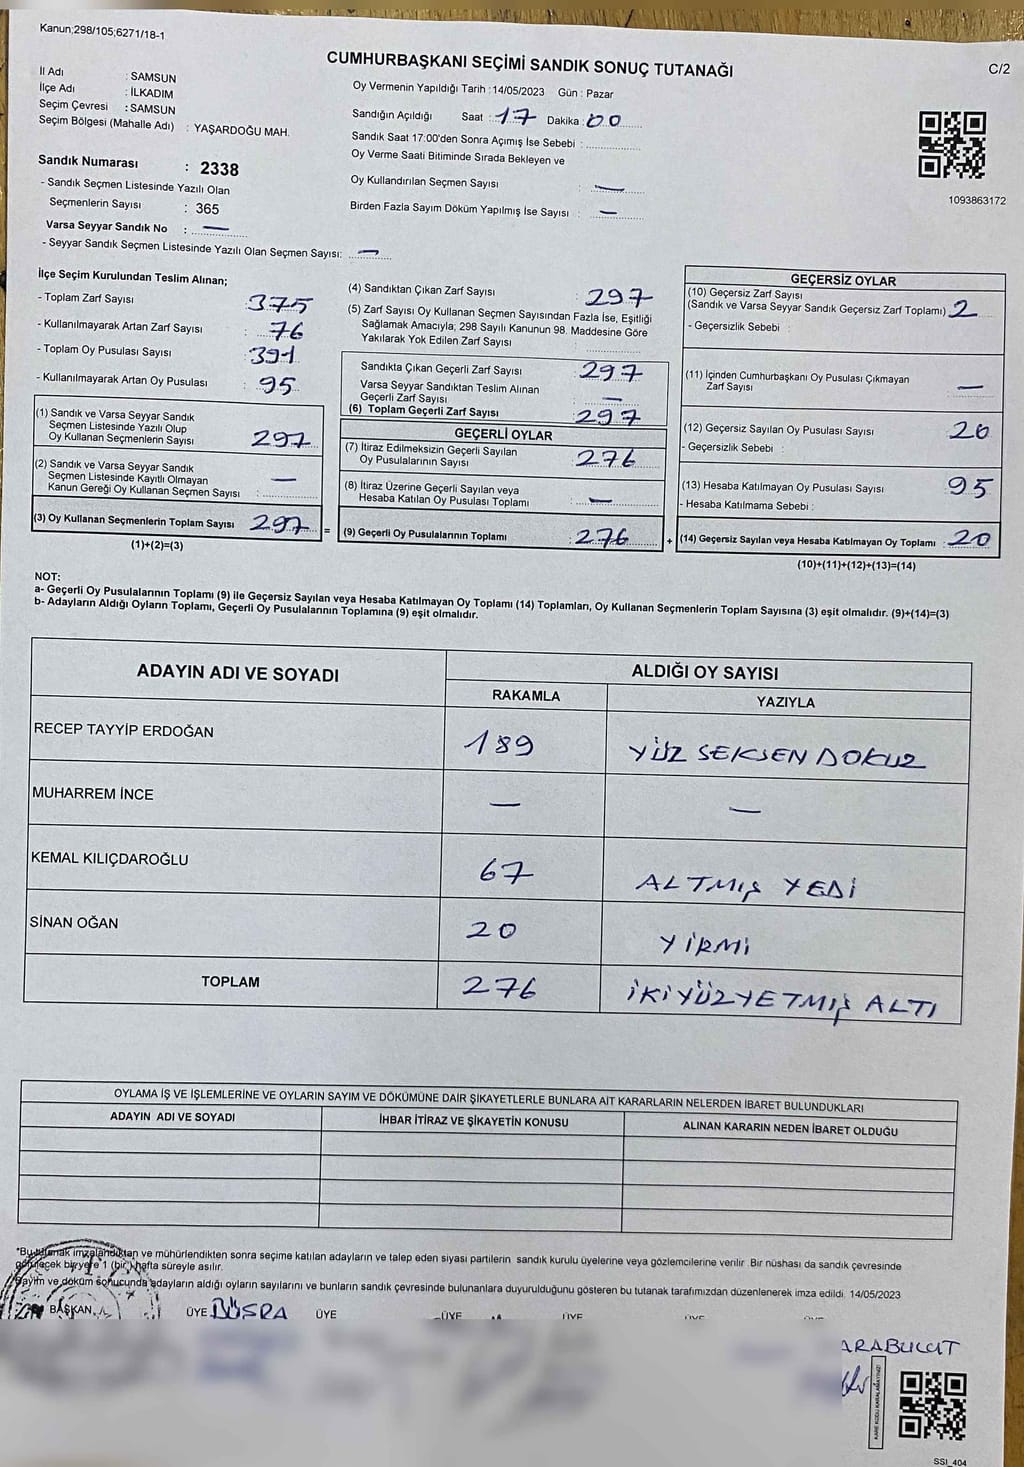 Kanun;298/105;6271/18-1
CUMHURBAŞKANI SEÇİMİ SANDIK SONUÇ TUTANAĞI
C/2
İl Adı : SAMSUN
İlçe Adı : İLKADIM
Seçim Çevresi : SAMSUN
Seçim Bölgesi (Mahalle Adı) : YAŞARDOĞU MAH.
Sandık Numarası : 2338
- Sandık Seçmen Listesinde Yazılı Olan
Seçmenlerin Sayısı : 365
Varsa Seyyar Sandık No : —
- Seyyar Sandık Seçmen Listesinde Yazılı Olan Seçmen Sayısı: —
Oy Vermenin Yapıldığı Tarih : 14/05/2023 Gün : Pazar
Sandığın Açıldığı Saat : 17 Dakika : 00
Sandık Saat 17:00'den Sonra Açımış İse Sebebi :
Oy Verme Saati Bitiminde Sırada Bekleyen ve
Oy Kullandırılan Seçmen Sayısı : —
Birden Fazla Sayım Döküm Yapılmış İse Sayısı : —
1093863172
İlçe Seçim Kurulundan Teslim Alınan;
- Toplam Zarf Sayısı : 375
- Kullanılmayarak Artan Zarf Sayısı : 76
- Toplam Oy Pusulası Sayısı : 391
- Kullanılmayarak Artan Oy Pusulası : 95
(1) Sandık ve Varsa Seyyar Sandık
Seçmen Listesinde Yazılı Olup
Oy Kullanan Seçmenlerin Sayısı : 297
(2) Sandık ve Varsa Seyyar Sandık
Seçmen Listesinde Kayıtlı Olmayan
Kanun Gereği Oy Kullanan Seçmen Sayısı : —
(3) Oy Kullanan Seçmenlerin Toplam Sayısı : 297 =
(1)+(2)=(3)
(4) Sandıktan Çıkan Zarf Sayısı : 297
(5) Zarf Sayısı Oy Kullanan Seçmen Sayısından Fazla İse, Eşitliği
Sağlamak Amacıyla; 298 Sayılı Kanunun 98. Maddesine Göre
Yakılarak Yok Edilen Zarf Sayısı :
Sandıkta Çıkan Geçerli Zarf Sayısı : 297
Varsa Seyyar Sandıktan Teslim Alınan
Geçerli Zarf Sayısı : —
(6) Toplam Geçerli Zarf Sayısı : 297
GEÇERLİ OYLAR
(7) İtiraz Edilmeksizin Geçerli Sayılan
Oy Pusulalarının Sayısı : 276
(8) İtiraz Üzerine Geçerli Sayılan veya
Hesaba Katılan Oy Pusulası Toplamı : —
(9) Geçerli Oy Pusulalarının Toplamı : 276 +
GEÇERSİZ OYLAR
(10) Geçersiz Zarf Sayısı
(Sandık ve Varsa Seyyar Sandık Geçersiz Zarf Toplamı) : 2
- Geçersizlik Sebebi :
(11) İçinden Cumhurbaşkanı Oy Pusulası Çıkmayan
Zarf Sayısı : —
(12) Geçersiz Sayılan Oy Pusulası Sayısı : 20
- Geçersizlik Sebebi :
(13) Hesaba Katılmayan Oy Pusulası Sayısı : 95
- Hesaba Katılmama Sebebi :
(14) Geçersiz Sayılan veya Hesaba Katılmayan Oy Toplamı : 20
(10)+(11)+(12)+(13)=(14)
NOT:
a- Geçerli Oy Pusulalarının Toplamı (9) ile Geçersiz Sayılan veya Hesaba Katılmayan Oy Toplamı (14) Toplamları, Oy Kullanan Seçmenlerin Toplam Sayısına (3) eşit olmalıdır. (9)+(14)=(3)
b- Adayların Aldığı Oyların Toplamı, Geçerli Oy Pusulalarının Toplamına (9) eşit olmalıdır.
ADAYIN ADI VE SOYADI ALDIĞI OY SAYISI
RAKAMLA YAZIYLA
RECEP TAYYİP ERDOĞAN 189 YÜZ SEKSEN DOKUZ
MUHARREM İNCE — —
KEMAL KILIÇDAROĞLU 67 ALTMIŞ YEDİ
SİNAN OĞAN 20 YİRMİ
TOPLAM 276 İKİ YÜZ YETMİŞ ALTI
OYLAMA İŞ VE İŞLEMLERİNE VE OYLARIN SAYIM VE DÖKÜMÜNE DAİR ŞİKAYETLERLE BUNLARA AİT KARARLARIN NELERDEN İBARET BULUNDUKLARI
ADAYIN ADI VE SOYADI İHBAR İTİRAZ VE ŞİKAYETİN KONUSU ALINAN KARARIN NEDEN İBARET OLDUĞU
*Bu tutanak imzalandıktan ve mühürlendikten sonra seçime katılan adayların ve talep eden siyasi partilerin sandık kurulu üyelerine veya gözlemcilerine verilir. Bir nüshası da sandık çevresinde
görülecek bir yere 1 (bir) hafta süreyle asılır.
Sayım ve döküm sonucunda adayların aldığı oyların sayılarını ve bunların sandık çevresinde bulunanlara duyurulduğunu gösteren bu tutanak tarafımızdan düzenlenerek imza edildi. 14/05/2023
BAŞKAN ÜYE BÜŞRA ÜYE ÜYE ÜYE
ARABULUT
KARE KODU KARALAMAYINIZ!
SSI_404